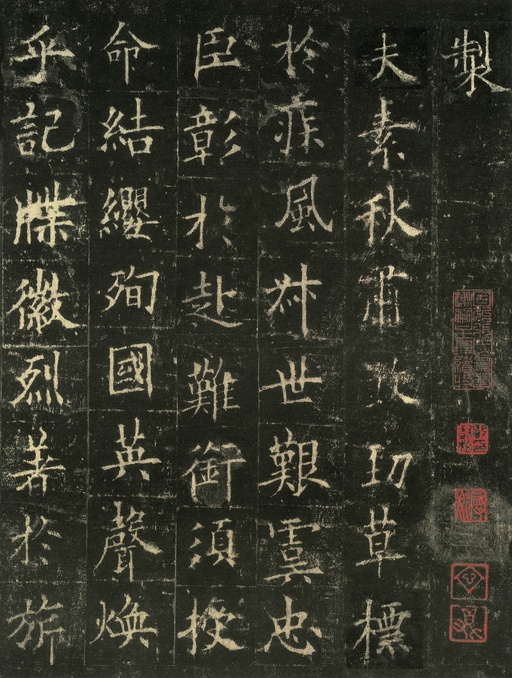 製
夫素秋肅煞勁草標
於疾風叔世艱虞忠
臣彰於赴難銜須授
命結纓殉國英聲煥
乎記牒徽烈著於旂